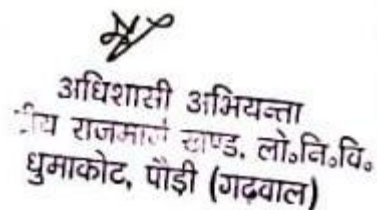 अधिशासी अभियन्ता
राजमार्ग खण्ड, लो॰नि॰वि॰
धुमाकोट, पौड़ी (गढ़वाल)